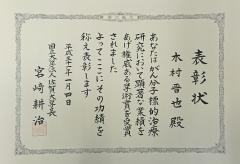 表彰状
木村晋也 殿
あなたはがん分子標的治療
研究において顕著な業績を
あげ権威ある学術賞を受賞
されました
よってここにその功績を
称え表彰します
平成二十一年一月四日
国立大学法人佐賀大学長
宮崎耕治